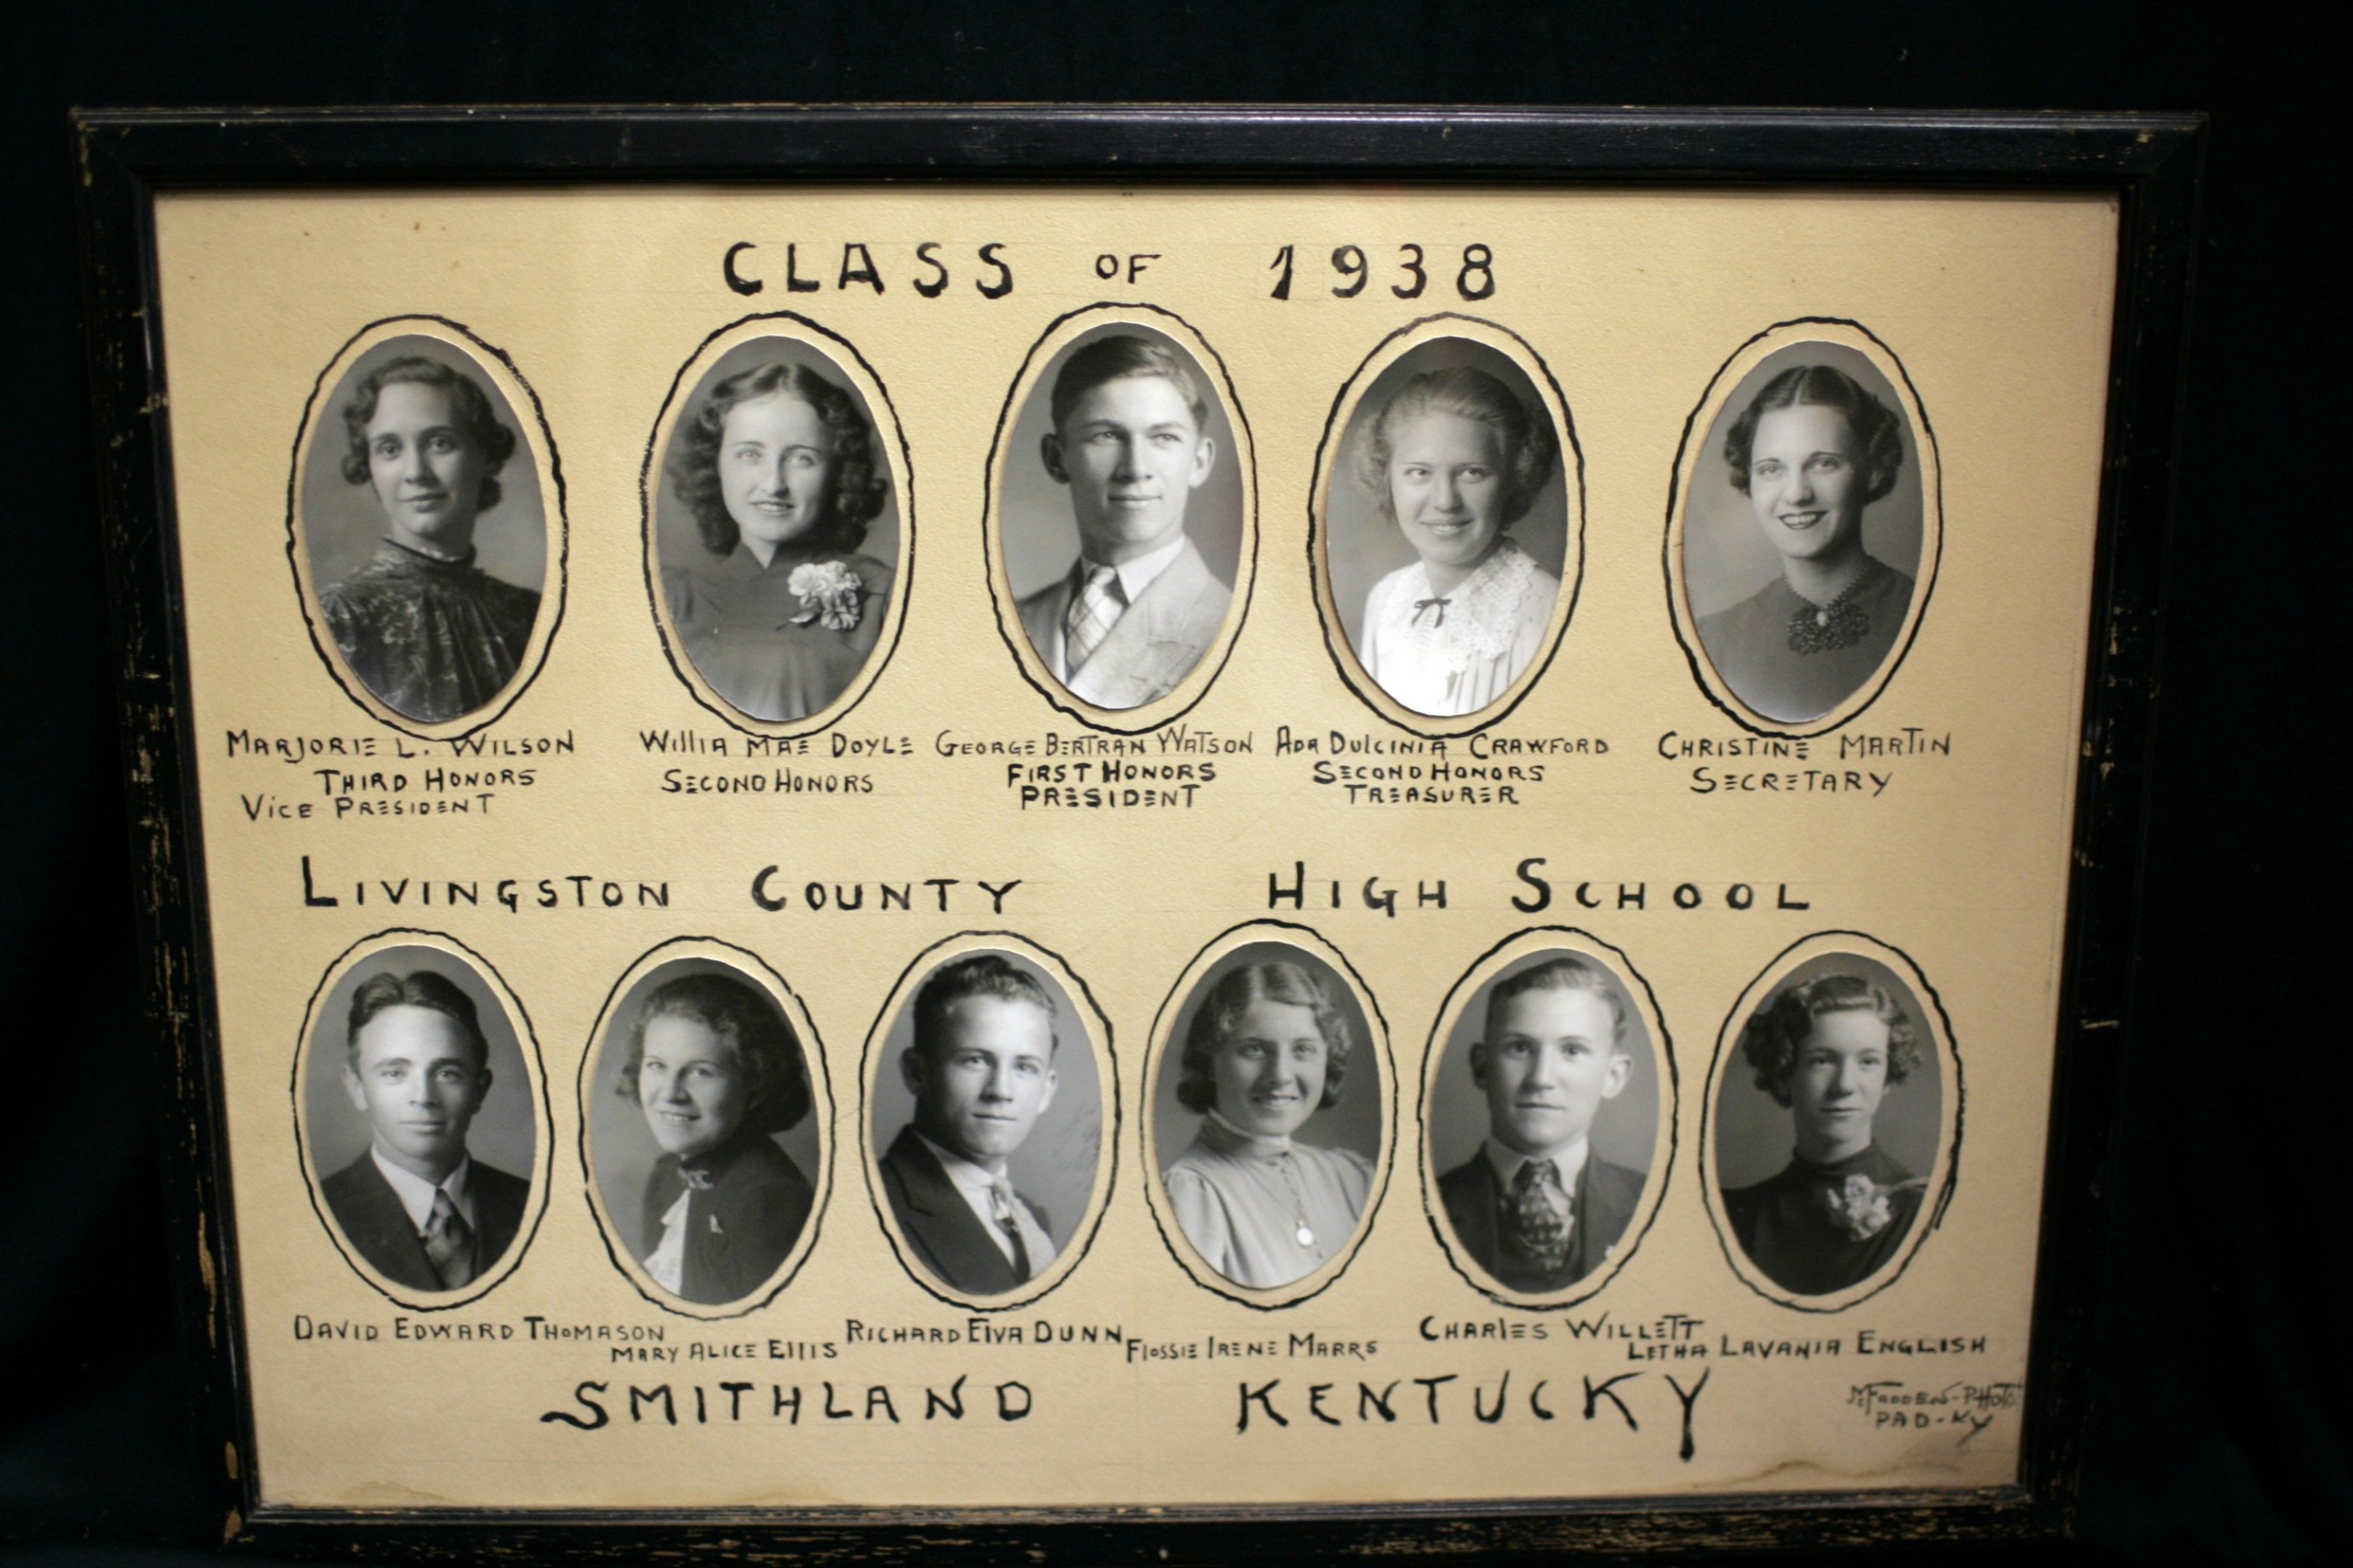 CLASS OF 1938
MARJORIE L. WILSON
THIRD HONORS
VICE PRESIDENT
WILLIA MAE DOYLE
SECOND HONORS
GEORGE BERTRAN WATSON
FIRST HONORS
PRESIDENT
ADA DULCINIA CRAWFORD
SECOND HONORS
TREASURER
CHRISTINE MARTIN
SECRETARY
LIVINGSTON COUNTY HIGH SCHOOL
DAVID EDWARD THOMASON
MARY ALICE ELLIS
RICHARD ELVA DUNN
FLOSSIE IRENE MARRS
CHARLES WILLETT
LETHA LAVANIA ENGLISH
SMITHLAND KENTUCKY
McFADDEN-PHOTO
PAD-KY